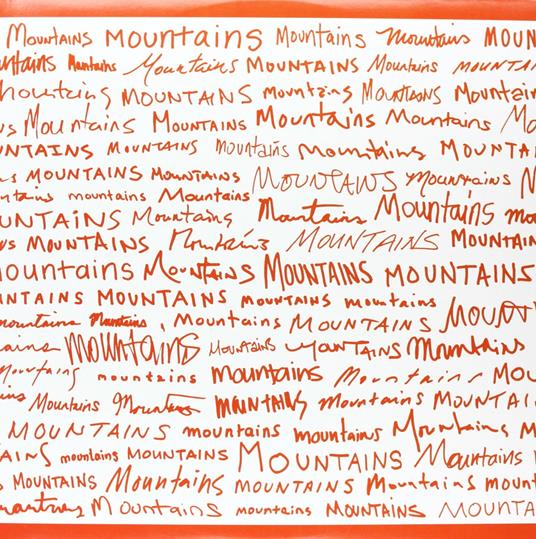 Mountains Mountains Mountains Mountains
Mountains Mountains MOUNTAINS Mountains
Mountains MOUNTAINS mountains Mountains Mountain
Mountains Mountains Mountains Mountains
MOUNTAINS mountains MOUNTAINS
MOUNTAINS MOUNTAINS MOUNTAINS Mountains
mountains Mountains
Mountains Mountains Mountains
MOUNTAINS Mountains MOUNTAINS
mountains Mountains MOUNTAINS MOUNTAINS
MOUNTAINS mountains mountains
mountains Mountains , Mountains MOUNTAINS
mountains MOUNTAINS Mountains Mountains
Mountains mountains mountains Mountains
Mountains Mountains MOUNTAINS mountains
MOUNTAINS mountains mountains Mountains
mountains MOUNTAINS MOUNTAINS Mountains
MOUNTAINS Mountains MOUNTAINS Mountains
Mountains mountains MOUNTAINS